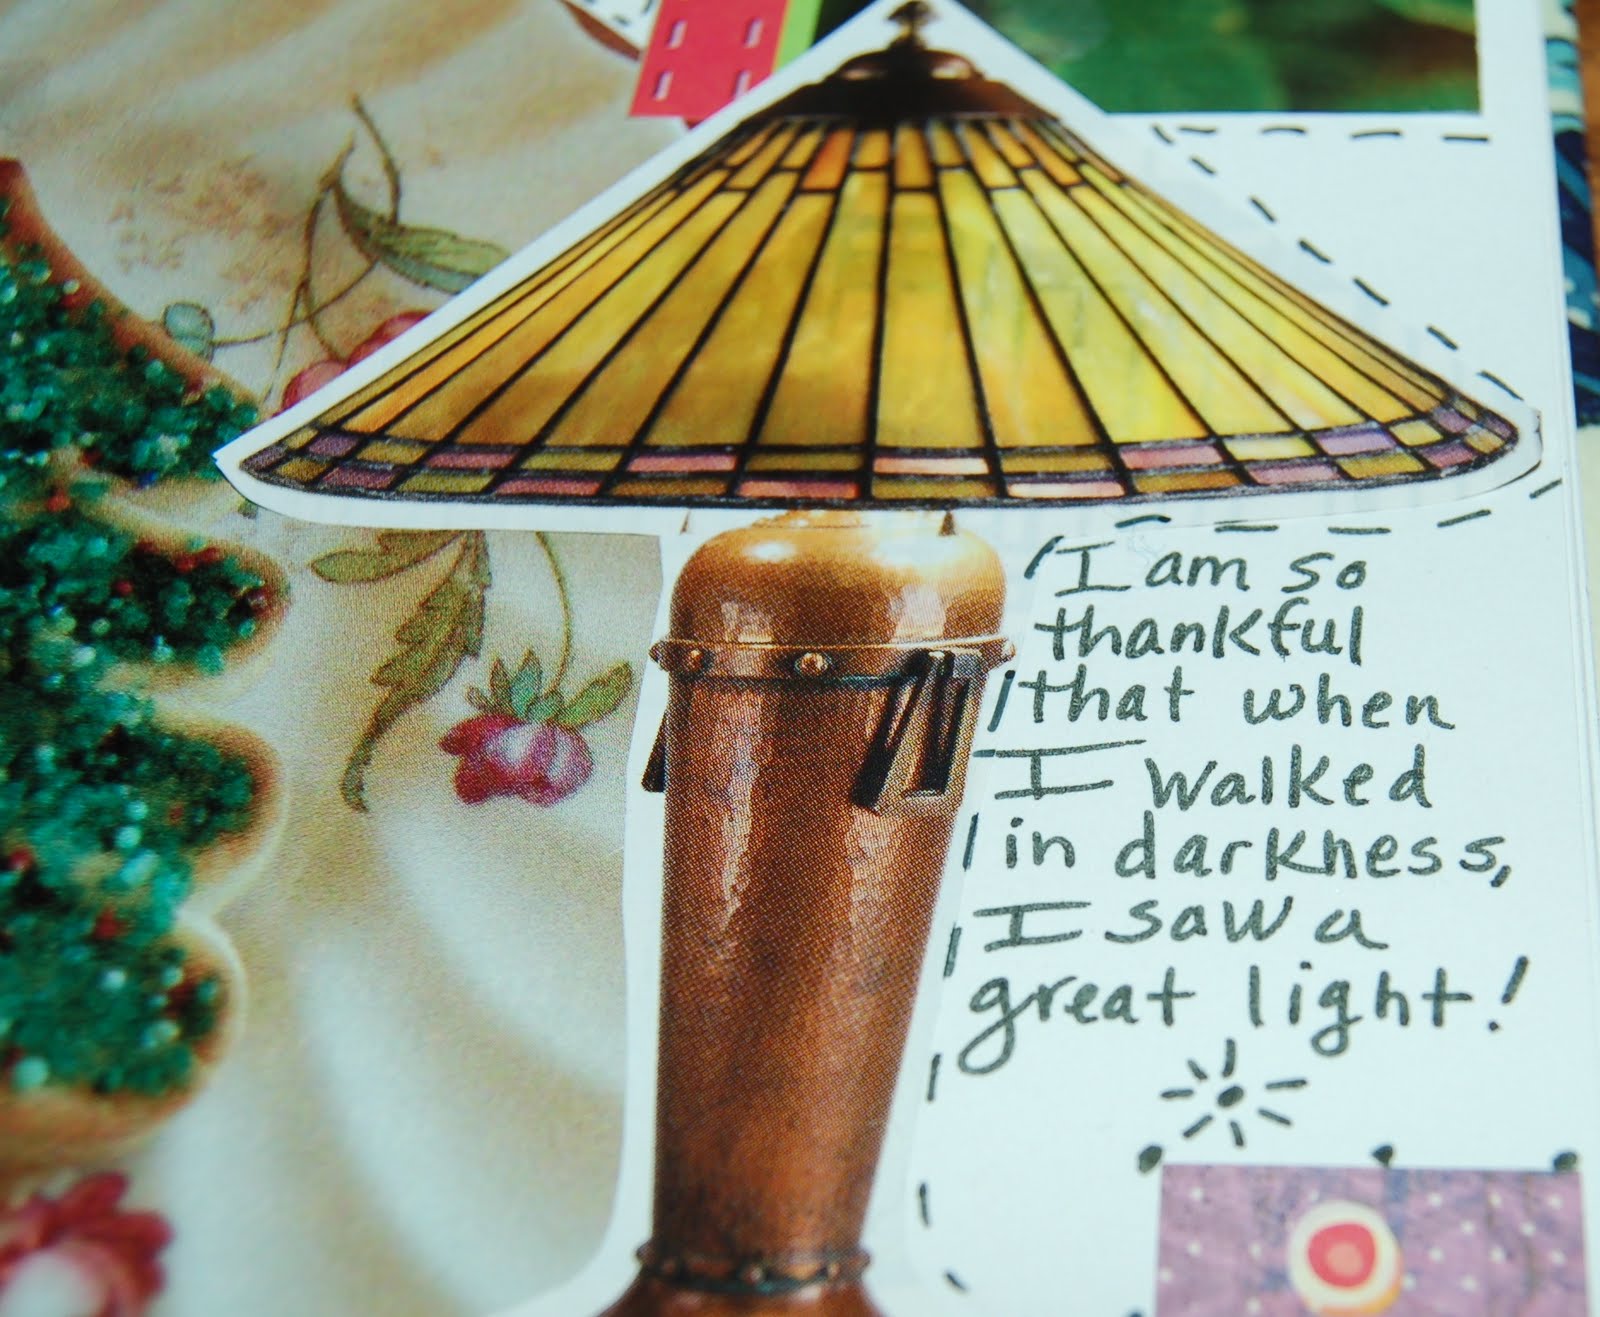 I am so
thankful
that when
I walked
in darkness,
I saw a
great light!